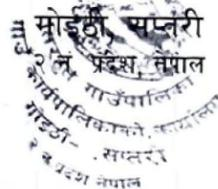 मोईठी, सप्तरी
२ नं प्रदेश, नेपाल
गाउँपालिका
गाउँ कार्यपालिकाको कार्यालय
मोईठी - सप्तरी
२ नं प्रदेश नेपाल